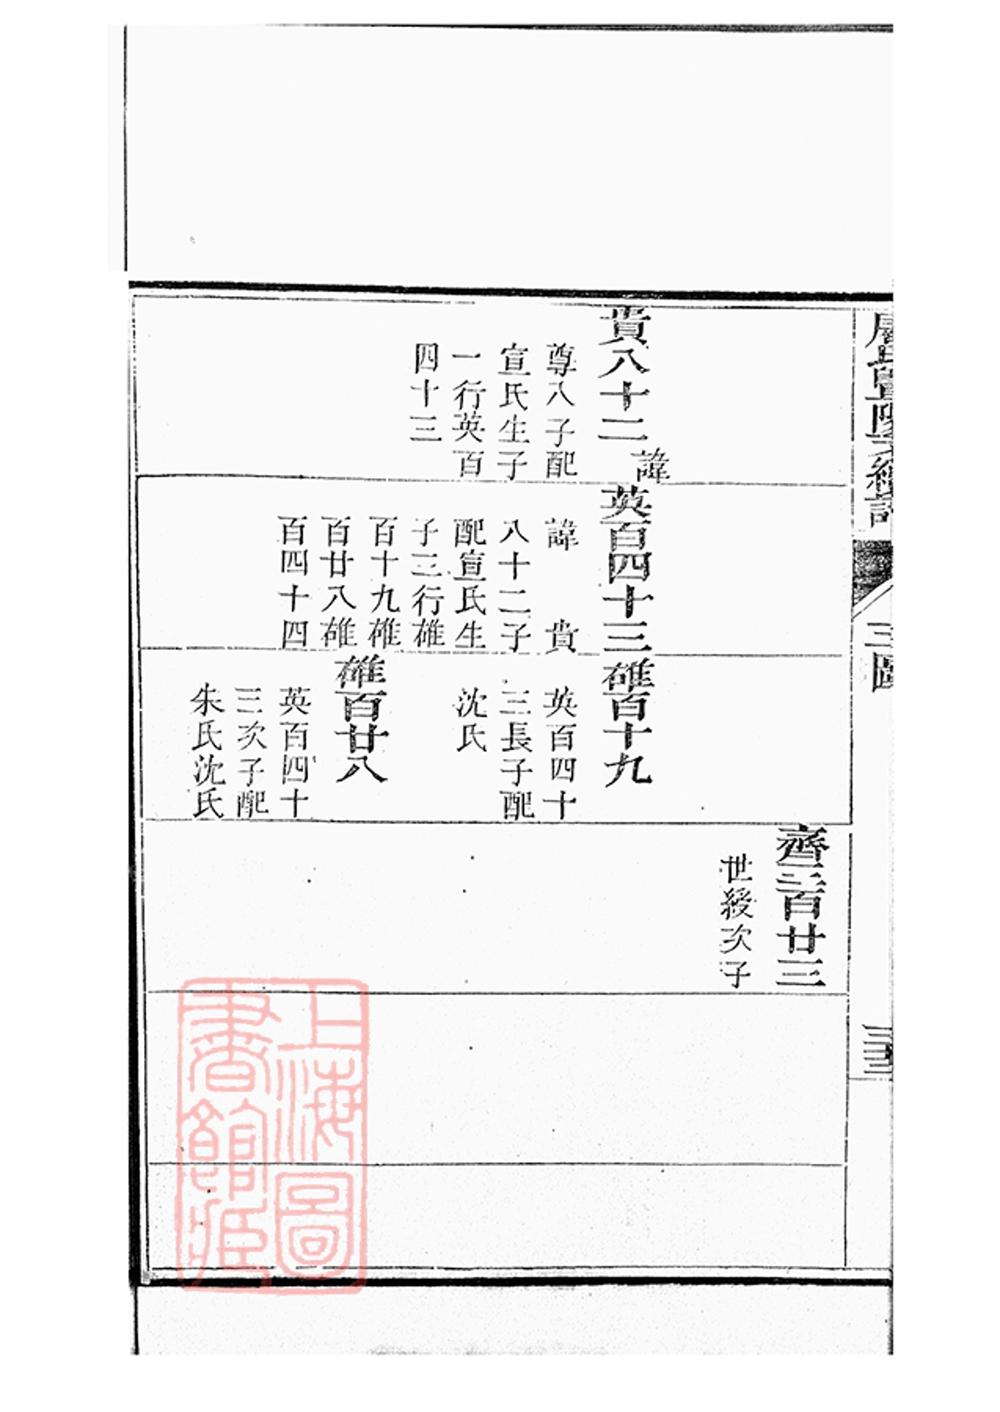 貴八十二
尊八子配
宣氏生子
一行英百
四十三
諱
英百四十三
諱　貴
八十二子
配宣氏生
子二行碓
百十九碓
百廿八碓
百四十四
碓百十九
英百四十
三長子配
沈氏
碓百廿八
英百四十
三次子配
朱氏沈氏
齊二百廿三
世綬次子
三圖
上海圖
書館藏